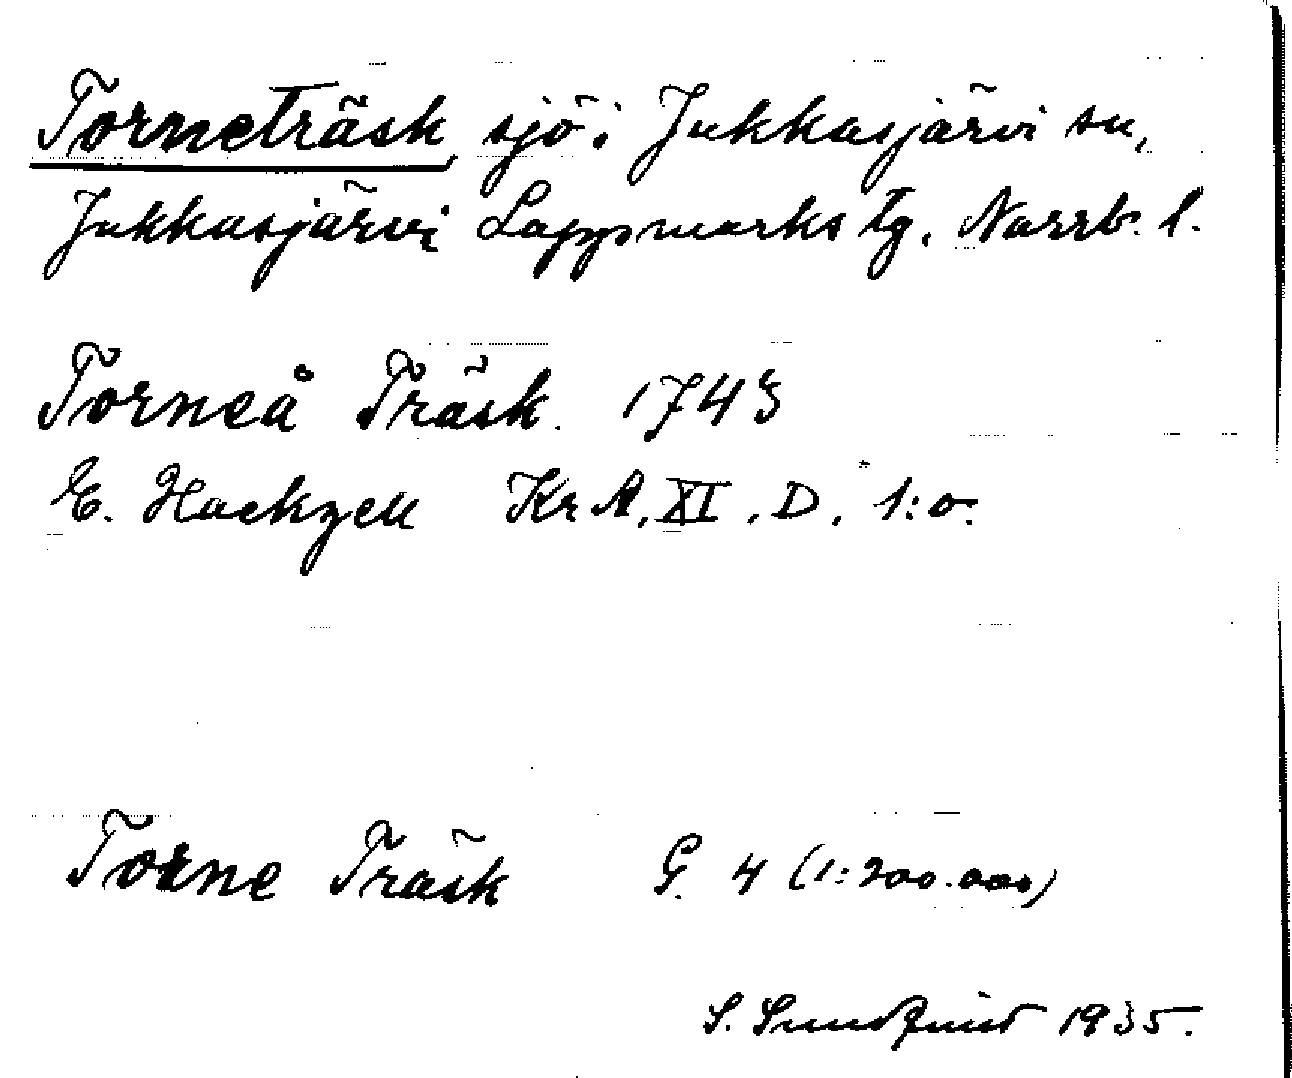 Torneträsk, sjö i Jukkasjärvi sn,
Jukkasjärvi Lappmarks tg. Norrb. l.
Torneå Träsk. 1743
E. Hackzell Kr A, XI, D, 1:o.
Torne Träsk G. 4 (1:200.000)
S. Sundquist 1935.